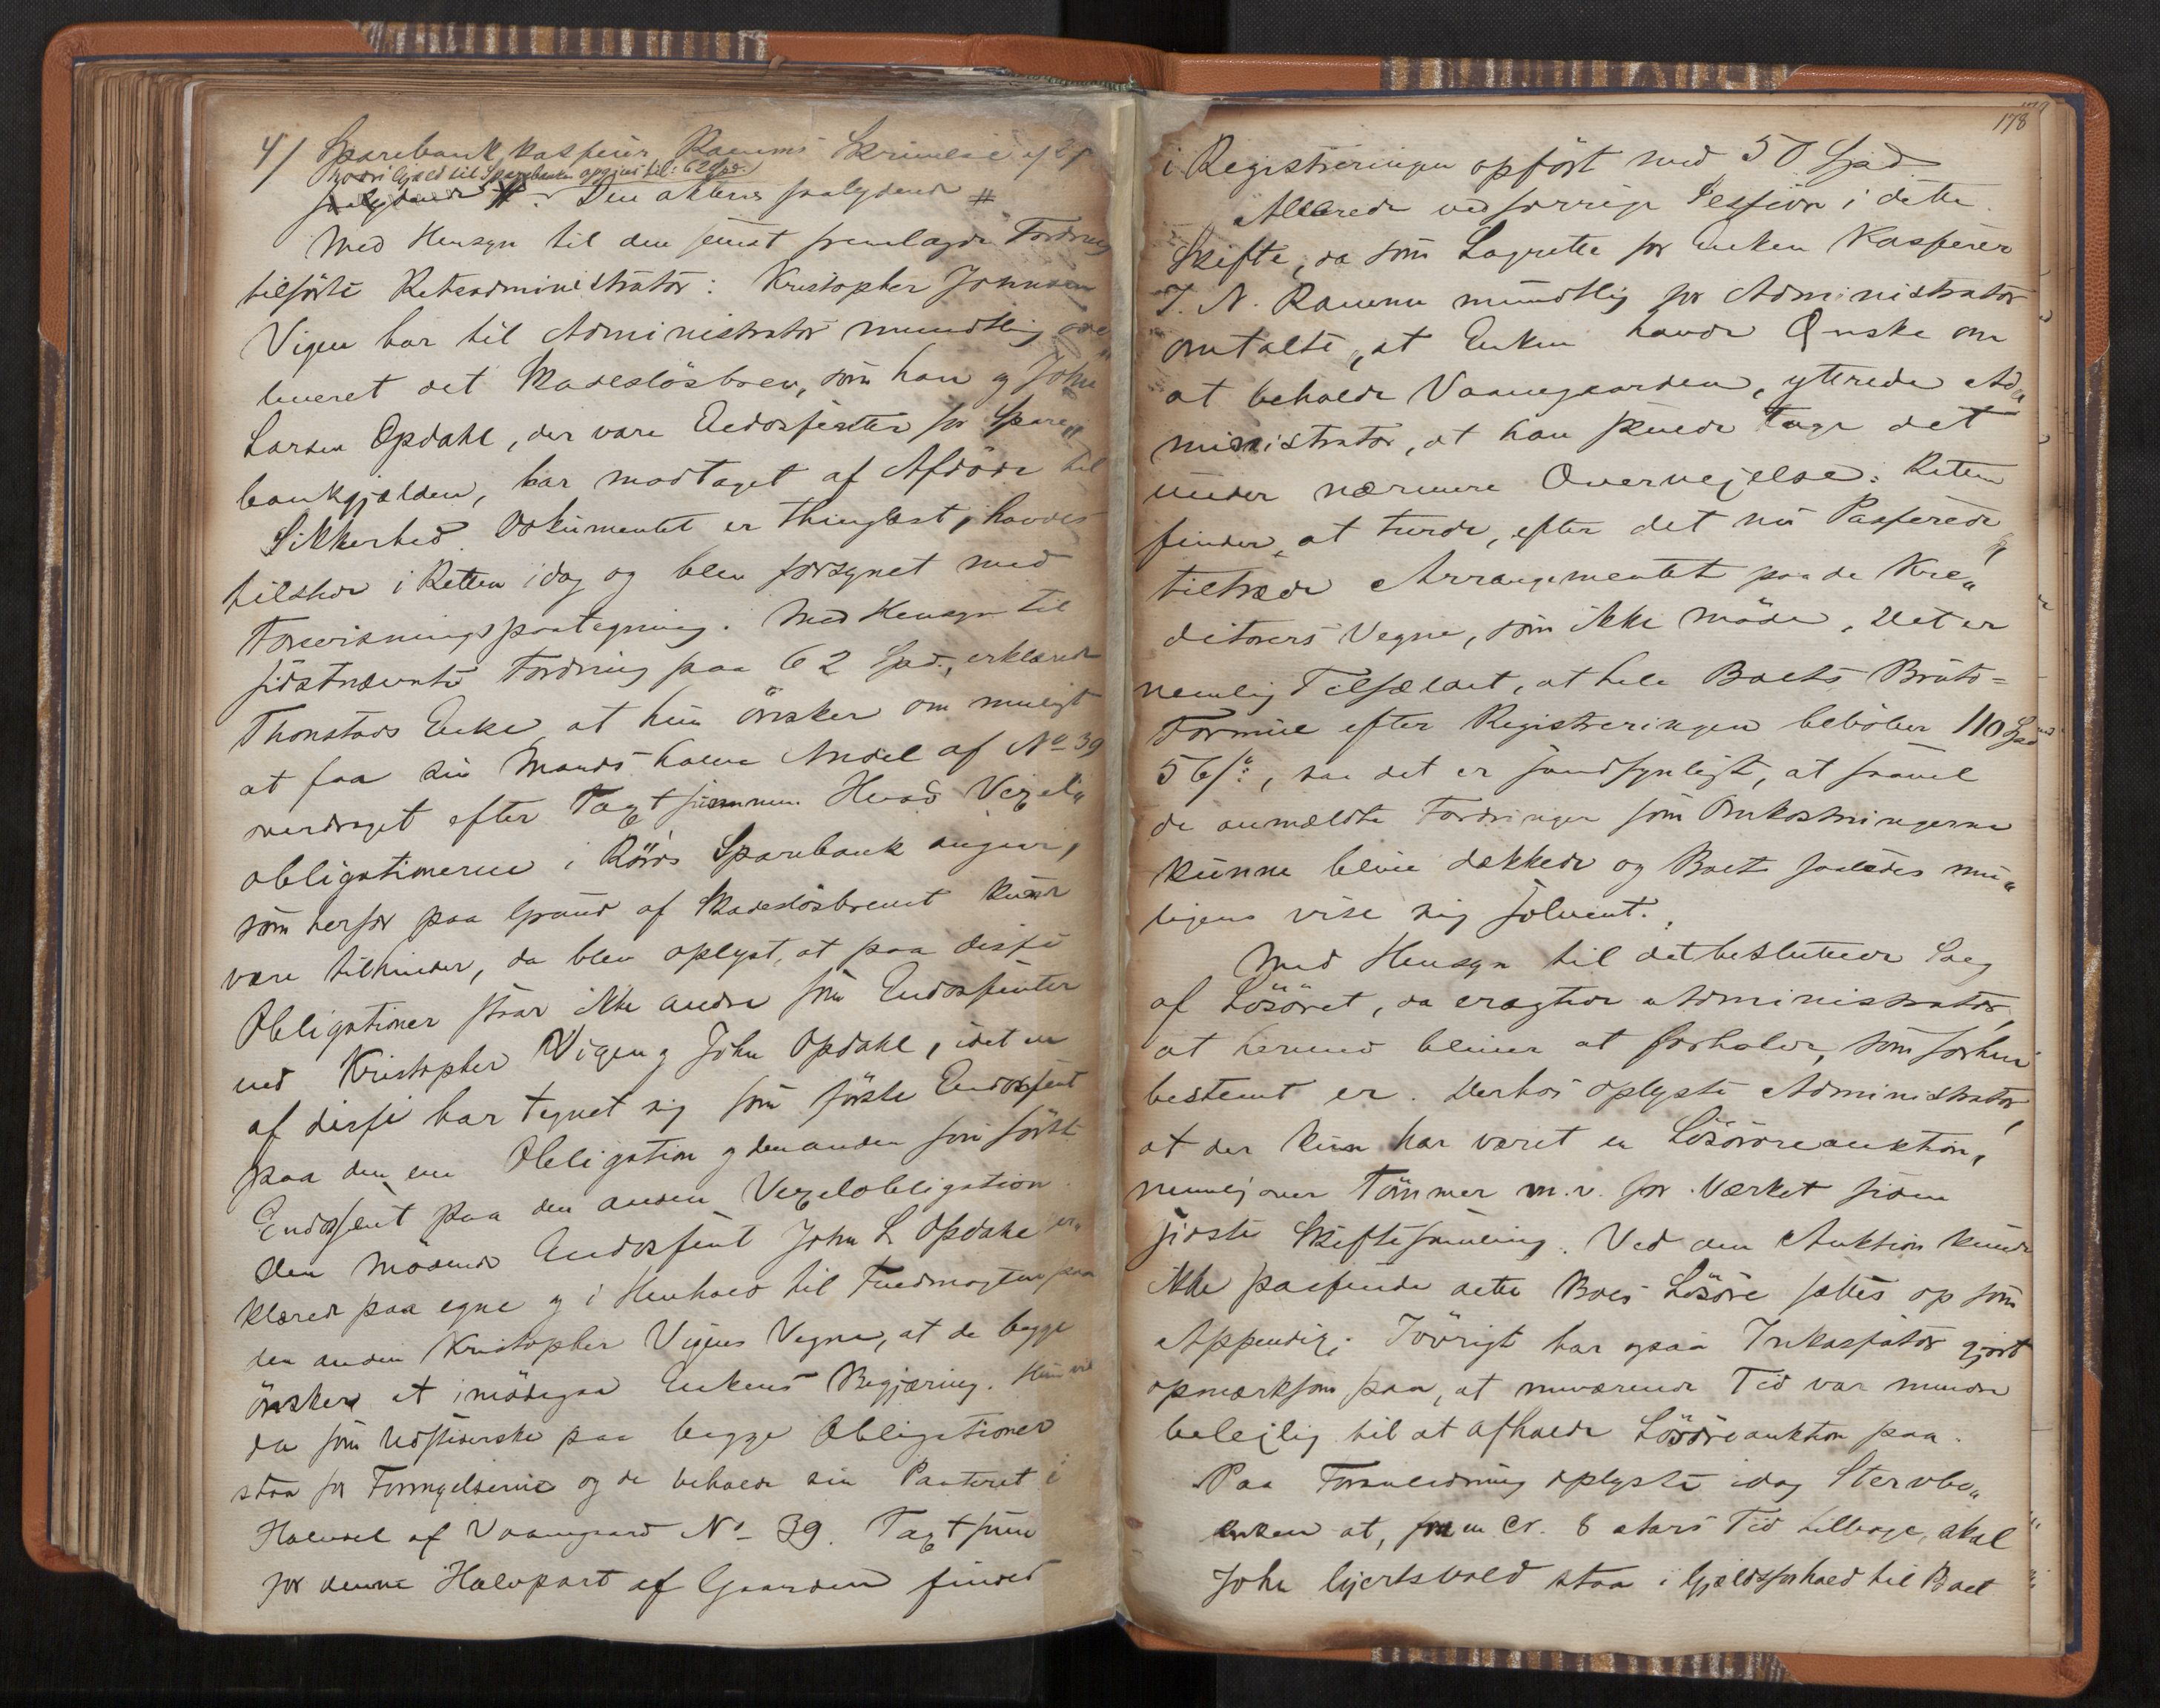 4/ Sparebankkasserer Ramms Skrivelse af 2/
hvori Gjæld til Sparebanken opgives til: 62 Spd.
saalydende #. Den aktens saalydende #
Med Hensyn til den senest fremlagde Fordring
tilførte Retsadministrator: Kristopher Johnsen
Vigen har til Administrator mundtlig ove
leveret det Skadesløsbrev, som han og John
Larsen Opdahl, der vare Endossenter for Spare„
bankgjælden, har modtaget af Afdøde til
Sikkerhed. Dokumentet er thinglæst, havdes
tilstede i Retten idag og blev forsynet med
Forevisningspaategning. Med Hensyn til
sidstnævnte Fordring paa 62 Spd., erklærede
Thonstads Enke, at hun ønsker om muligt
at faa sin Mands halve Andel af No 39
overdraget efter Taxtsummen. Hvad Vexel„
obligationerne i Røros Sparebank angaar,
som herfor paa Grund af Skadesløsbrevet kunde
være tilhinder, da blev oplyst, at paa disse
Obligationer staar ikke andre som Endossenter
end Kristopher Vigen og John Opdahl, idet en
af disse har tegnet sig som første Endossent
paa den ene Obligation og den anden som første
Endossent paa den anden Vexelobligation.
Den mødende Endossent John L. Opdahl er„
klærede paa egne og i Henhold til Fuldmagten paa
den anden Kristopher Vigens Vegne, at de begge
ønsker at imødegaa Enkens Begjæring. Hun vil
da som Udstederske paa begge Obligationer
staa for Fornyelserne og de beholde sin Panteret i
Halvdel af Vaaningaard No 39. Taxtsum
for denne Halvpart af Gaarden findes
178
i Registreringen opført med 50 Spd.
Allerede ved forrige Session i dette
Skifte, da som Lagrette for Enken Kasserer
J. N. Ramm mundtlig for Administrator
omtalte, at Enken havde Ønske om
at beholde Vaaningaarden, yttrede Ad„
ministrator, at han skulde tage det
under nærmere Overvejelse. Retten
finder at turde, efter det nu Passerede
tiltræde Arrangementet paa de Kre„
ditorers Vegne, som ikke møde. Det er
nemlig Tilfældet, at hele Boets Bruto=
Formue efter Registreringen beløber 110 Spd
56 s:, saa det er sandsynligt, at saavel
de anmeldte Fordringer som Omkostningerne
kunne blive dækkede og Boet saaledes mu„
ligens vise sig solvent.
Med Hensyn til det besluttede Salg
af Løsøret, da eragtede Administrator,
at hermed bliver at forholde, som forhen
bestemt er. Derhos oplyste Administrator,
at der kun har været en Løsøreauktion,
nemlig over Tømmer m.v. for Værket siden
sidste Skiftesamling. Ved den Auktion kunde
ikke passende dette Boes Løsøre sættes op som
Appendix. Iøvrigt har ogsaa Inkassator gjort
opmærksom paa, at nuværende Tid var mindre
belejlig til at afholde Løsøreauktion paa.
Paa Foranledning oplyste idag Stervbo„
enken at, fra en cr. 8 Aars Tid tilbage, skal
John Gjertsvold staa i Gjældsforhold til Boet